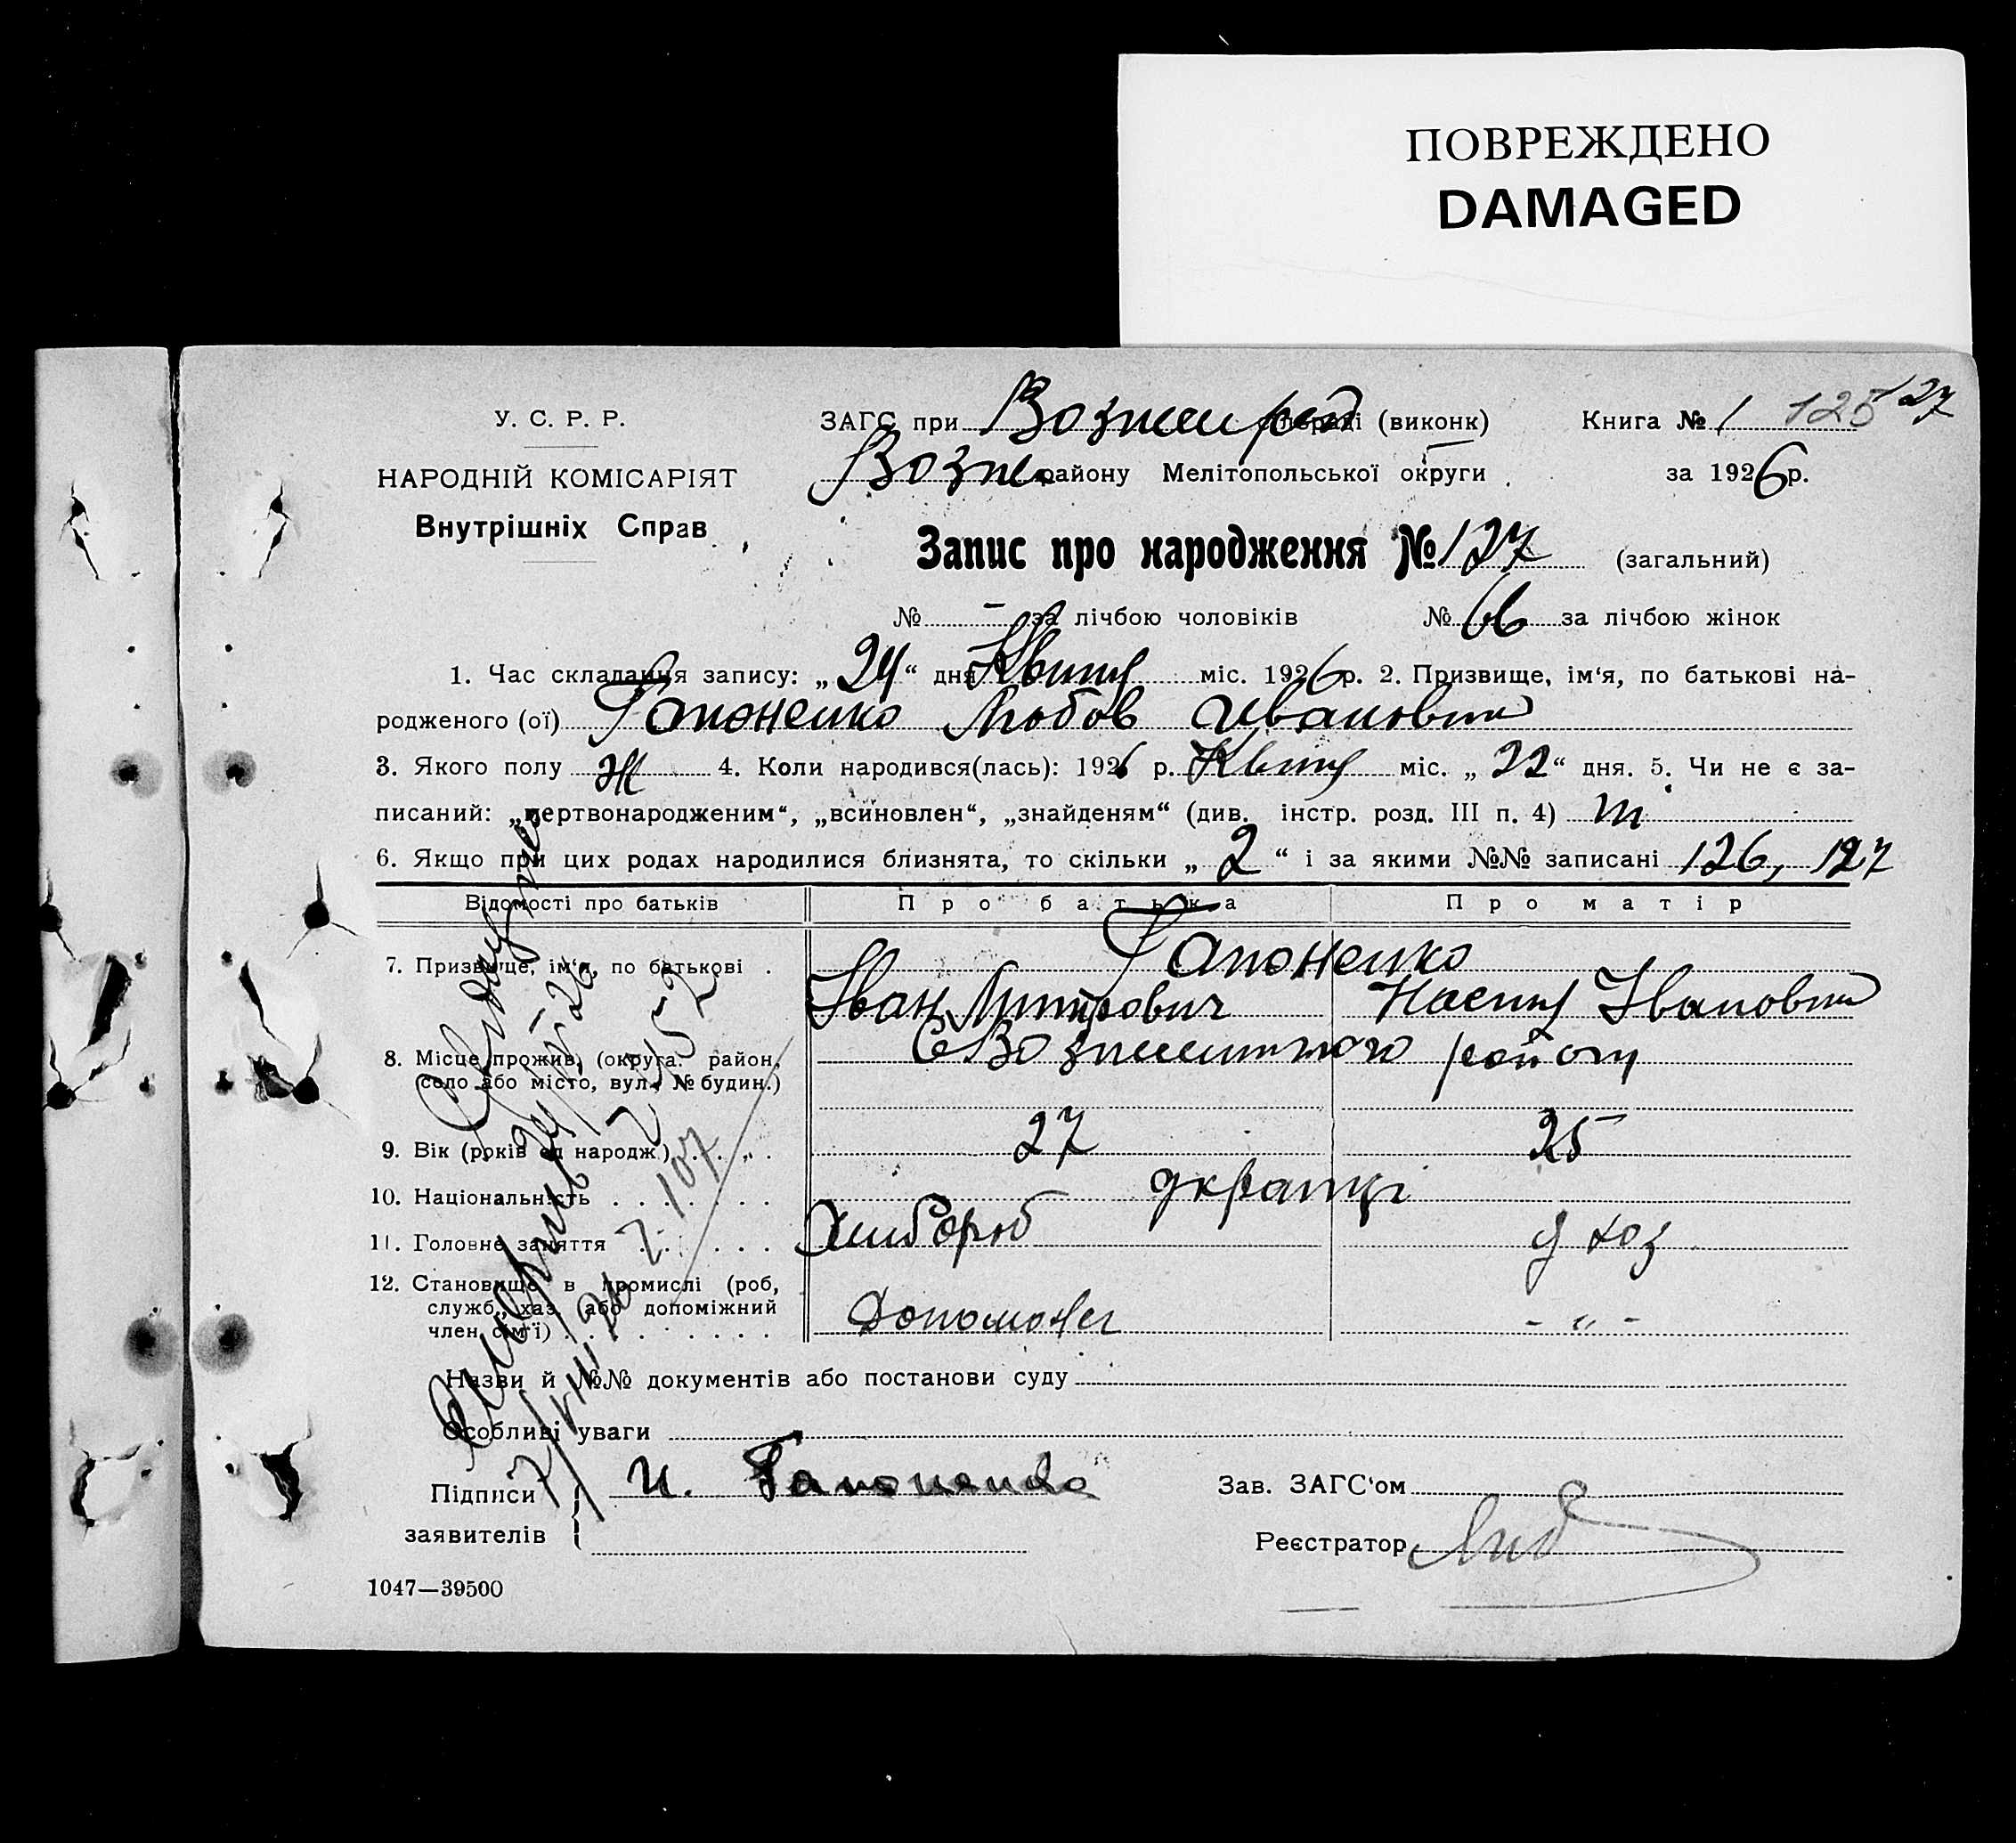 ПОВРЕЖДЕНО
DAMAGED
У. С. Р. Р.
НАРОДНІЙ КОМІСАРІЯТ
Внутрішніх Справ
ЗАГС при (виконк)
Книга № 1 125 127
району Мелітопольської округи
за 1926 р.
Запис про народження № 127 (загальний)
№ – за лічбою чоловіків № 66 за лічбою жінок
1. Час складання запису: „24“ дня Квітня міс. 1926 р. 2. Призвище, ім‘я, по батькові на-
родженого (ої) Гапоненко Любов Ивановна
3. Якого полу Ж 4. Коли народився(лась): 1926 р. Квітня міс. „22“ дня. 5. Чи не є за-
писаний: „мертвонародженим“, „всиновлен“, „знайденям“ (див. інстр. розд. III п. 4)
6. Якщо при цих родах народилися близнята, то скільки „2“ і за якими №№ записані 126, 127
Відомості про батьків Про батька Про матір
Гапоненко
7. Призвище, ім‘я, по батькові Іван Митрович Івановна
8. Місце прожив. (округа, район, село або місто, вул., № будин.) району
9. Вік (років од народж.) 27 25
10. Національність українці
11. Головне заняття Хлібороб д хоз
12. Становище в промислі (роб, служб., хаз. або допоміжний член сім‘ї) - „ -
Назви й №№ документів або постанови суду
Особливі уваги
Підписи заявителів И. Гапоненко
Зав. ЗАГС‘ом
Реєстратор
1047—39500